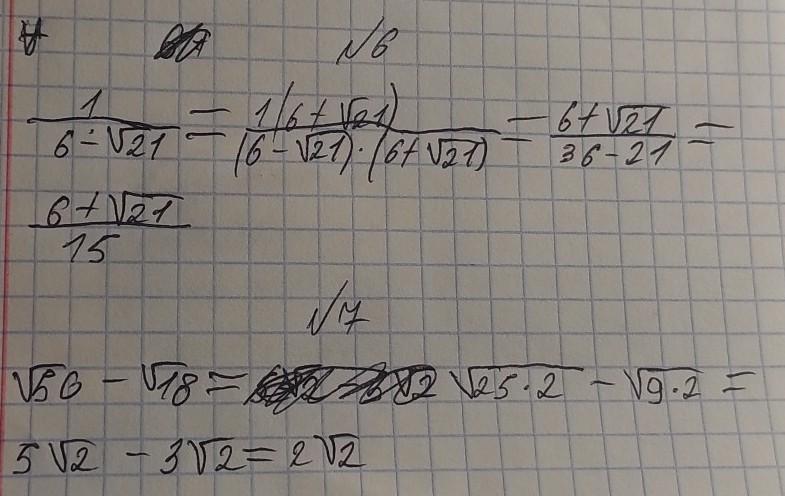 №6
1/(6-√21) = 1(6+√21)/((6-√21)·(6+√21)) = (6+√21)/(36-21) =
(6+√21)/15
№7
√50 - √18 = √25·2 - √9·2 =
5√2 - 3√2 = 2√2